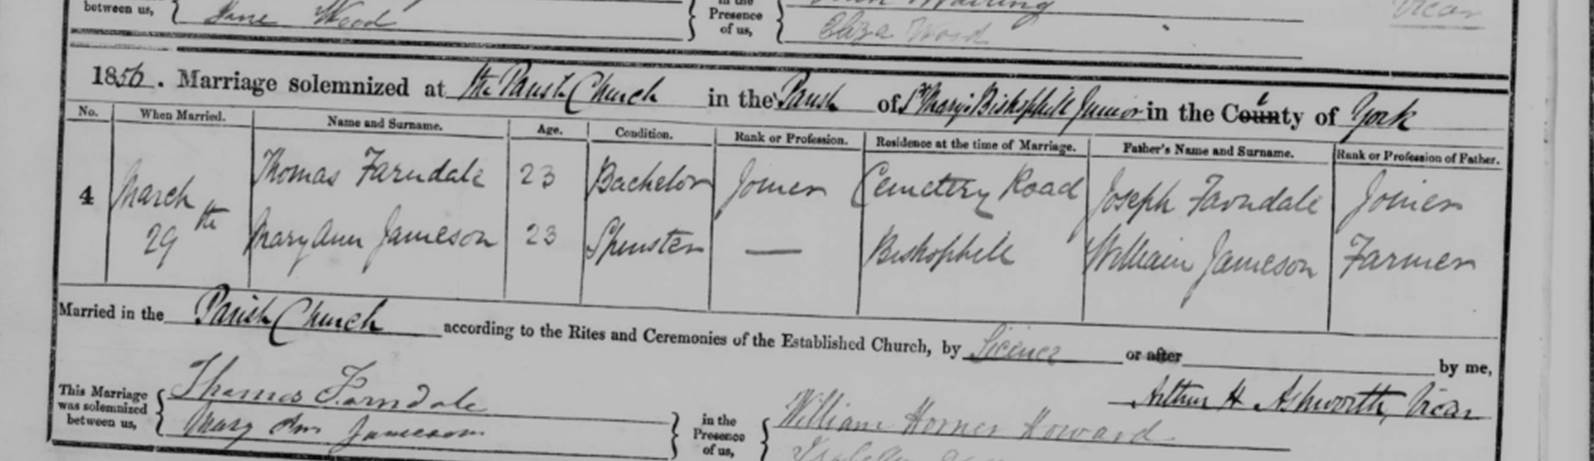 between us, Jane Wood in the Presence of us, Eliza Wood Vicar
1856. Marriage solemnized at the Parish Church in the Parish of St Mary's Bishophill Junior in the County of York
No. When Married. Name and Surname. Age. Condition. Rank or Profession. Residence at the time of Marriage. Father's Name and Surname. Rank or Profession of Father.
4 March 29th Thomas Farndale 23 Bachelor Joiner Cemetery Road Joseph Farndale Joiner
Mary Ann Jameson 23 Spinster — Bishophill William Jameson Farmer
Married in the Parish Church according to the Rites and Ceremonies of the Established Church, by Licence or after by me,
Arthur H Ashworth, Vicar
This Marriage was solemnized between us, Thomas Farndale in the Presence of us, William Horner Howard
Mary Ann Jameson